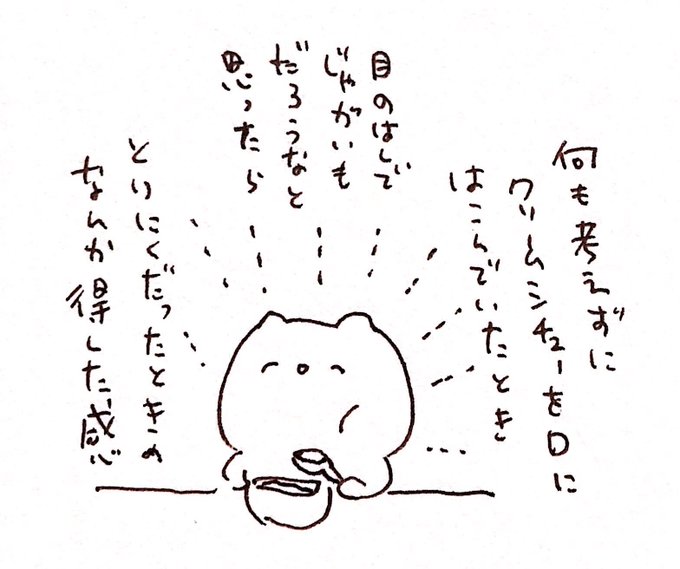 何も考えずに
クリームシチューを口に
はこんでいたとき
目のはしで
じゃがいも
だろうなと
思ったら
とりにくだったときの
なんか得した感